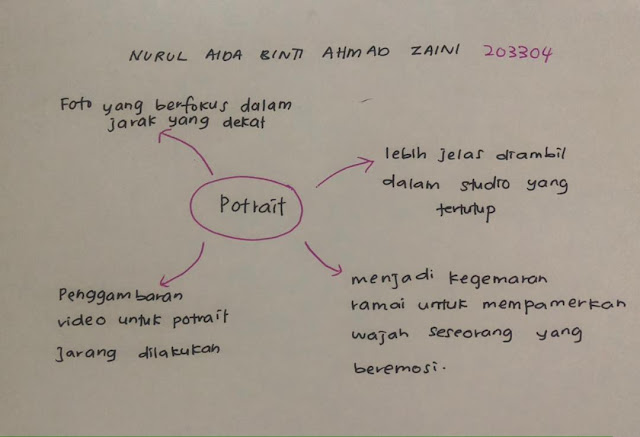 NURUL AIDA BINTI AHMAD ZAINI 203304
Foto yang berfokus dalam
jarak yang dekat
lebih jelas diambil
dalam studio yang
tertutup
Potrait
Penggambaran
video untuk potrait
jarang dilakukan
menjadi kegemaran
ramai untuk mempamerkan
wajah seseorang yang
beremosi.